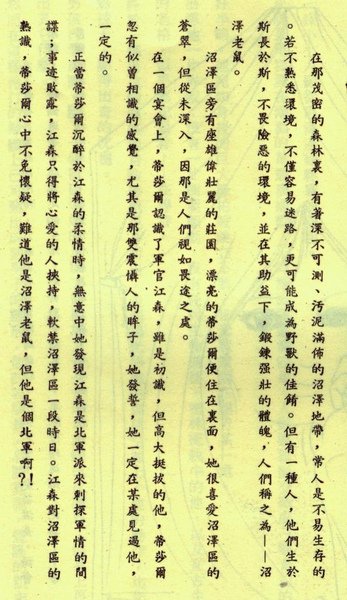 在那茂密的森林裏，有著深不可測、汚泥滿佈的沼澤地帶，常人是不易生存的
。若不熟悉環境，不僅容易迷路，更可能成為野獸的佳餚。但有一種人，他們生於
斯長於斯，不畏險惡的環境，並在其助益下，鍛鍊强壯的體魄，人們稱之為——沼
澤老鼠。
沼澤區旁有座雄偉壯麗的莊園，漂亮的蒂莎爾便住在裏面，她很喜愛沼澤區的
蒼翠，但從未深入，因那是人們視如畏途之處。
在一個宴會上，蒂莎爾認識了軍官江森，雖是初識，但高大挺拔的他，蒂莎爾
忽有似曾相識的感覺，尤其是那雙震懾人的眸子，她發誓，她一定在某處見過他，
一定的。
正當蒂莎爾沉醉於江森的柔情時，無意中她發現江森是北軍派來刺探軍情的間
諜；事迹敗露，江森只得將心愛的人挾持，軟禁沼澤區一段時日。江森對沼澤區的
熟識，蒂莎爾心中不免懷疑，難道他是沼澤老鼠，但他是個北軍啊?!